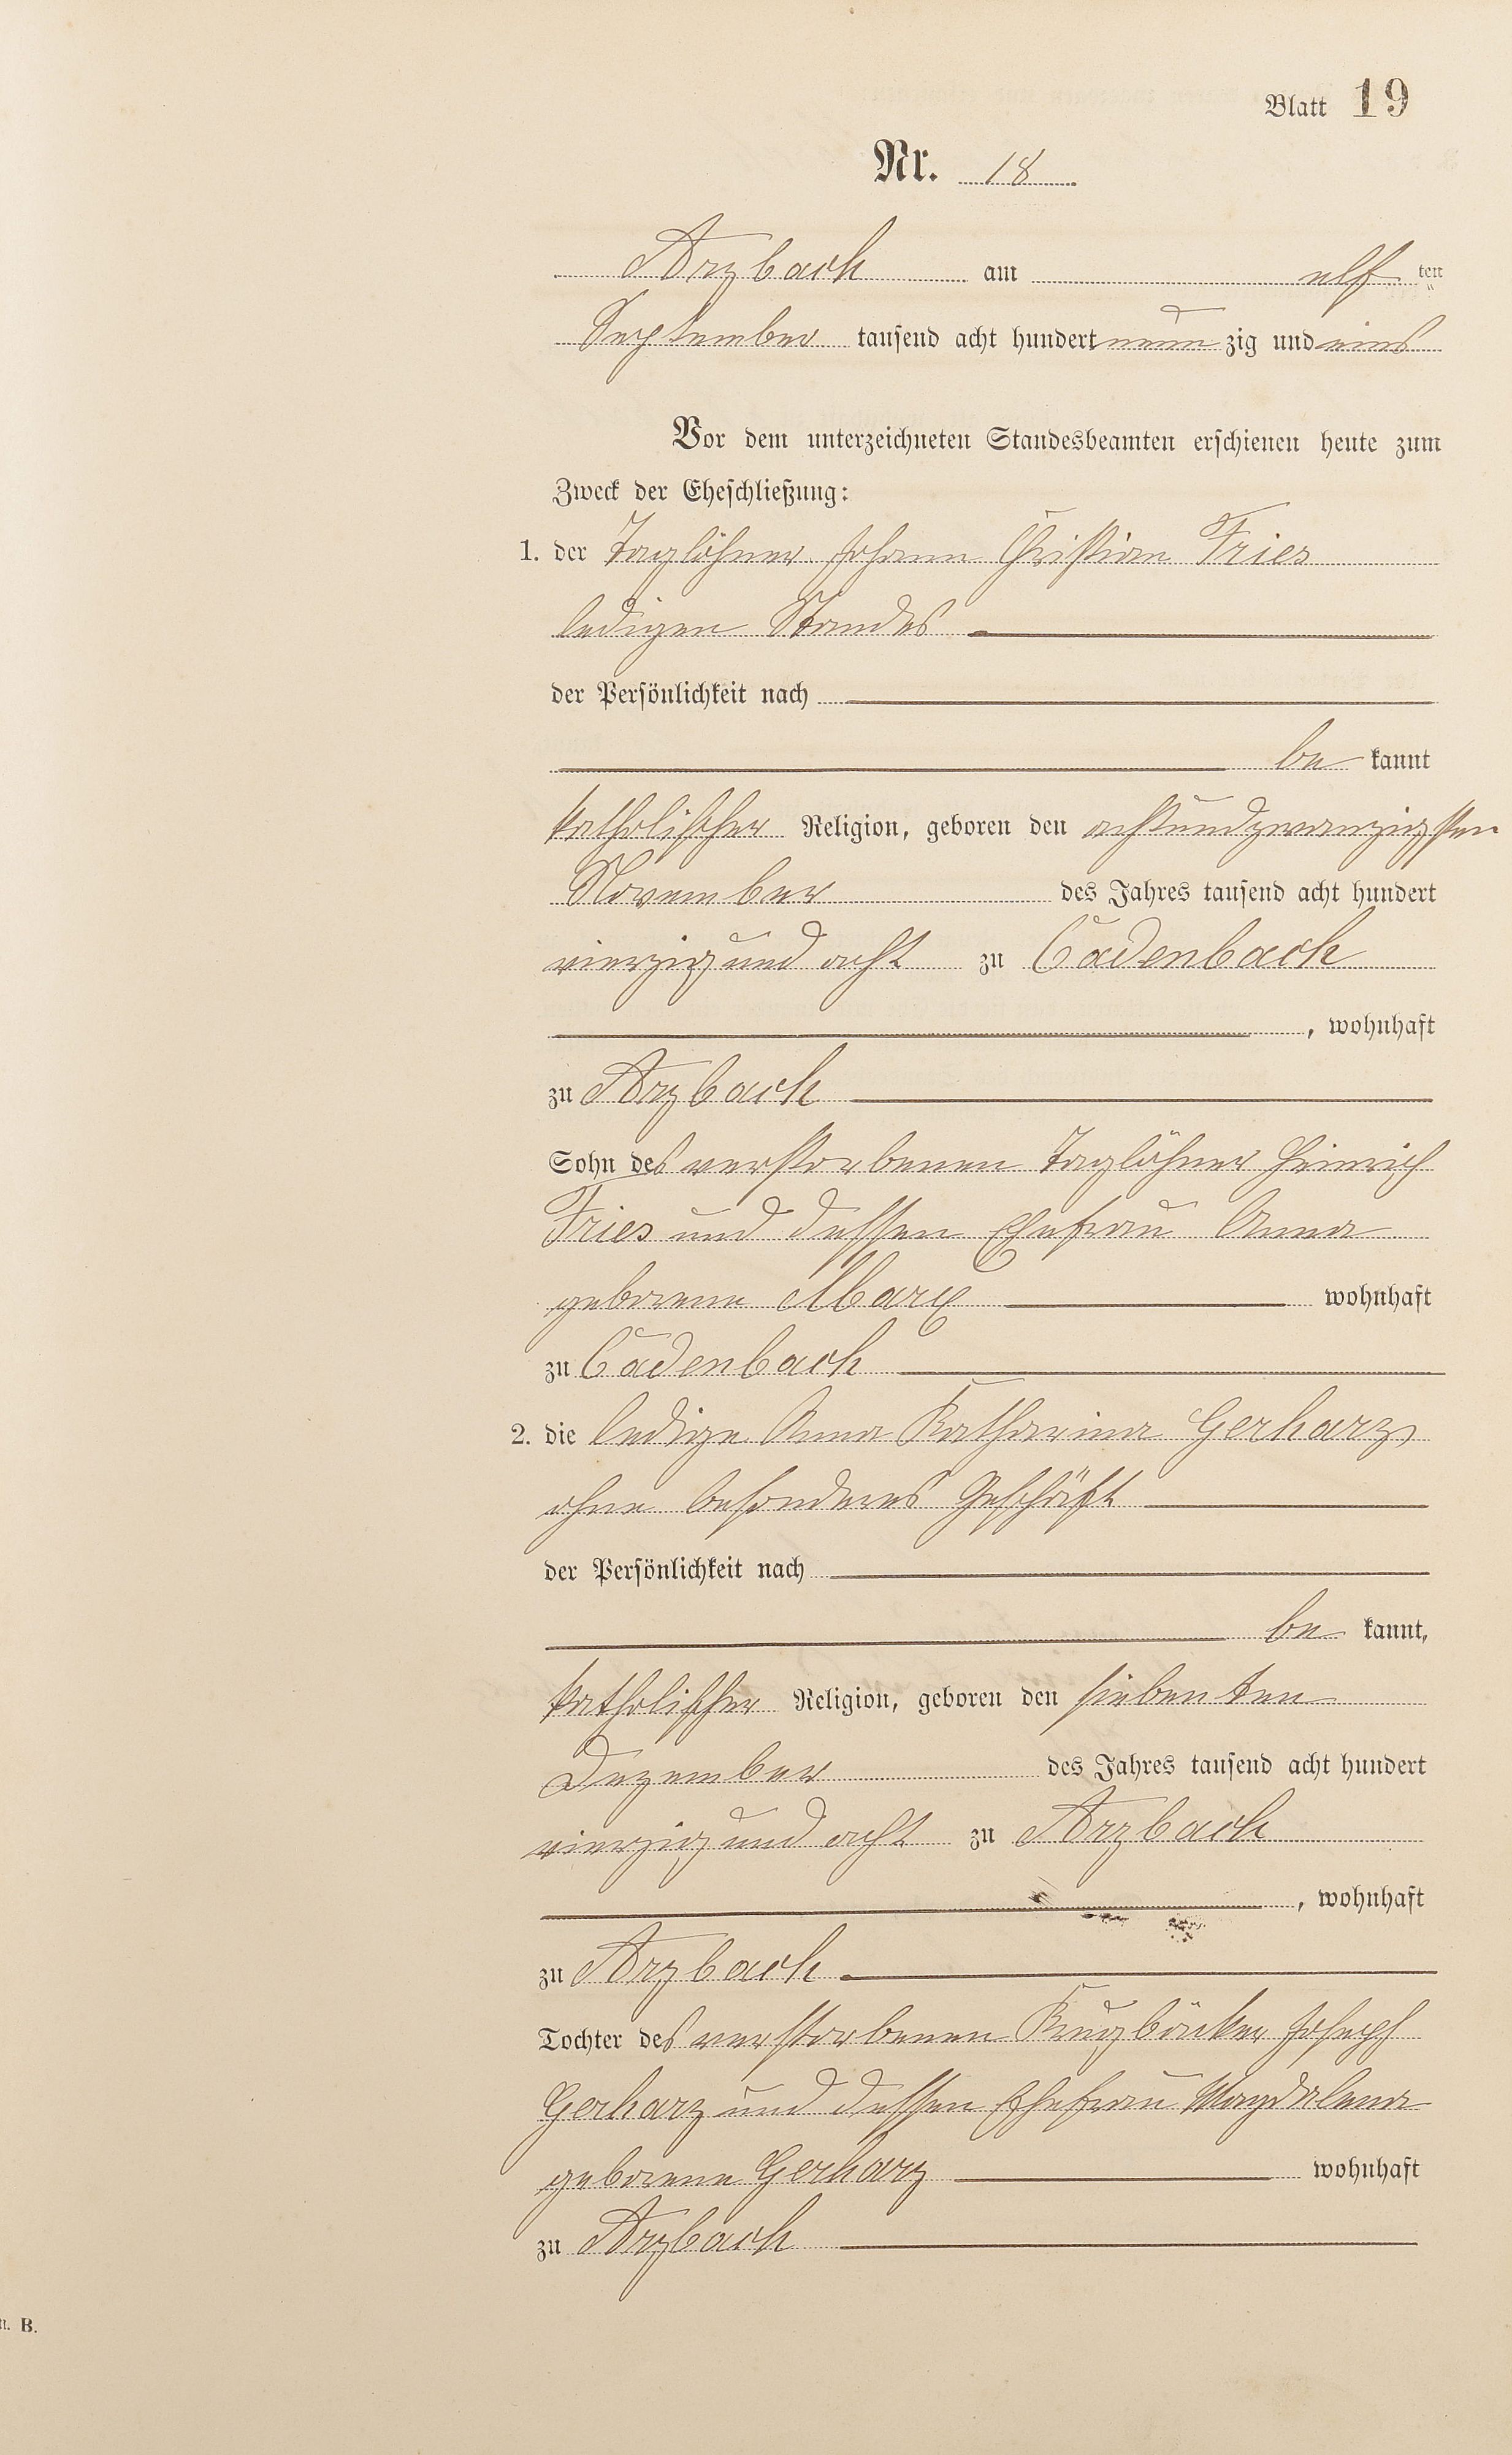 Blatt 19
Nr. 18
Arzbach am elf ten
September tausend acht hundert neun zig und eins
Vor dem unterzeichneten Standesbeamten erschienen heute zum
Zweck der Eheschließung:
1. der Taglöhner Johann Christian Fries
ledigen Standes
der Persönlichkeit nach
be kannt
katholischer Religion, geboren den achtundzwanzigsten
November des Jahres tausend acht hundert
vierzig und acht zu Cadenbach
, wohnhaft
zu Arzbach
Sohn des verstorbenen Taglöhner Heinrich
Fries und dessen Ehefrau Anna
geborene Marx wohnhaft
zu Cadenbach
2. die ledige Anna Katharina Gerharz
ohne besonderes Geschäft
der Persönlichkeit nach
be kannt,
katholischer Religion, geboren den siebenten
Dezember des Jahres tausend acht hundert
vierzig und acht zu Arzbach
, wohnhaft
zu Arzbach
Tochter des verstorbenen Krugbäcker Joseph
Gerharz und dessen Ehefrau Magdalena
geborene Gerharz wohnhaft
zu Arzbach
B.